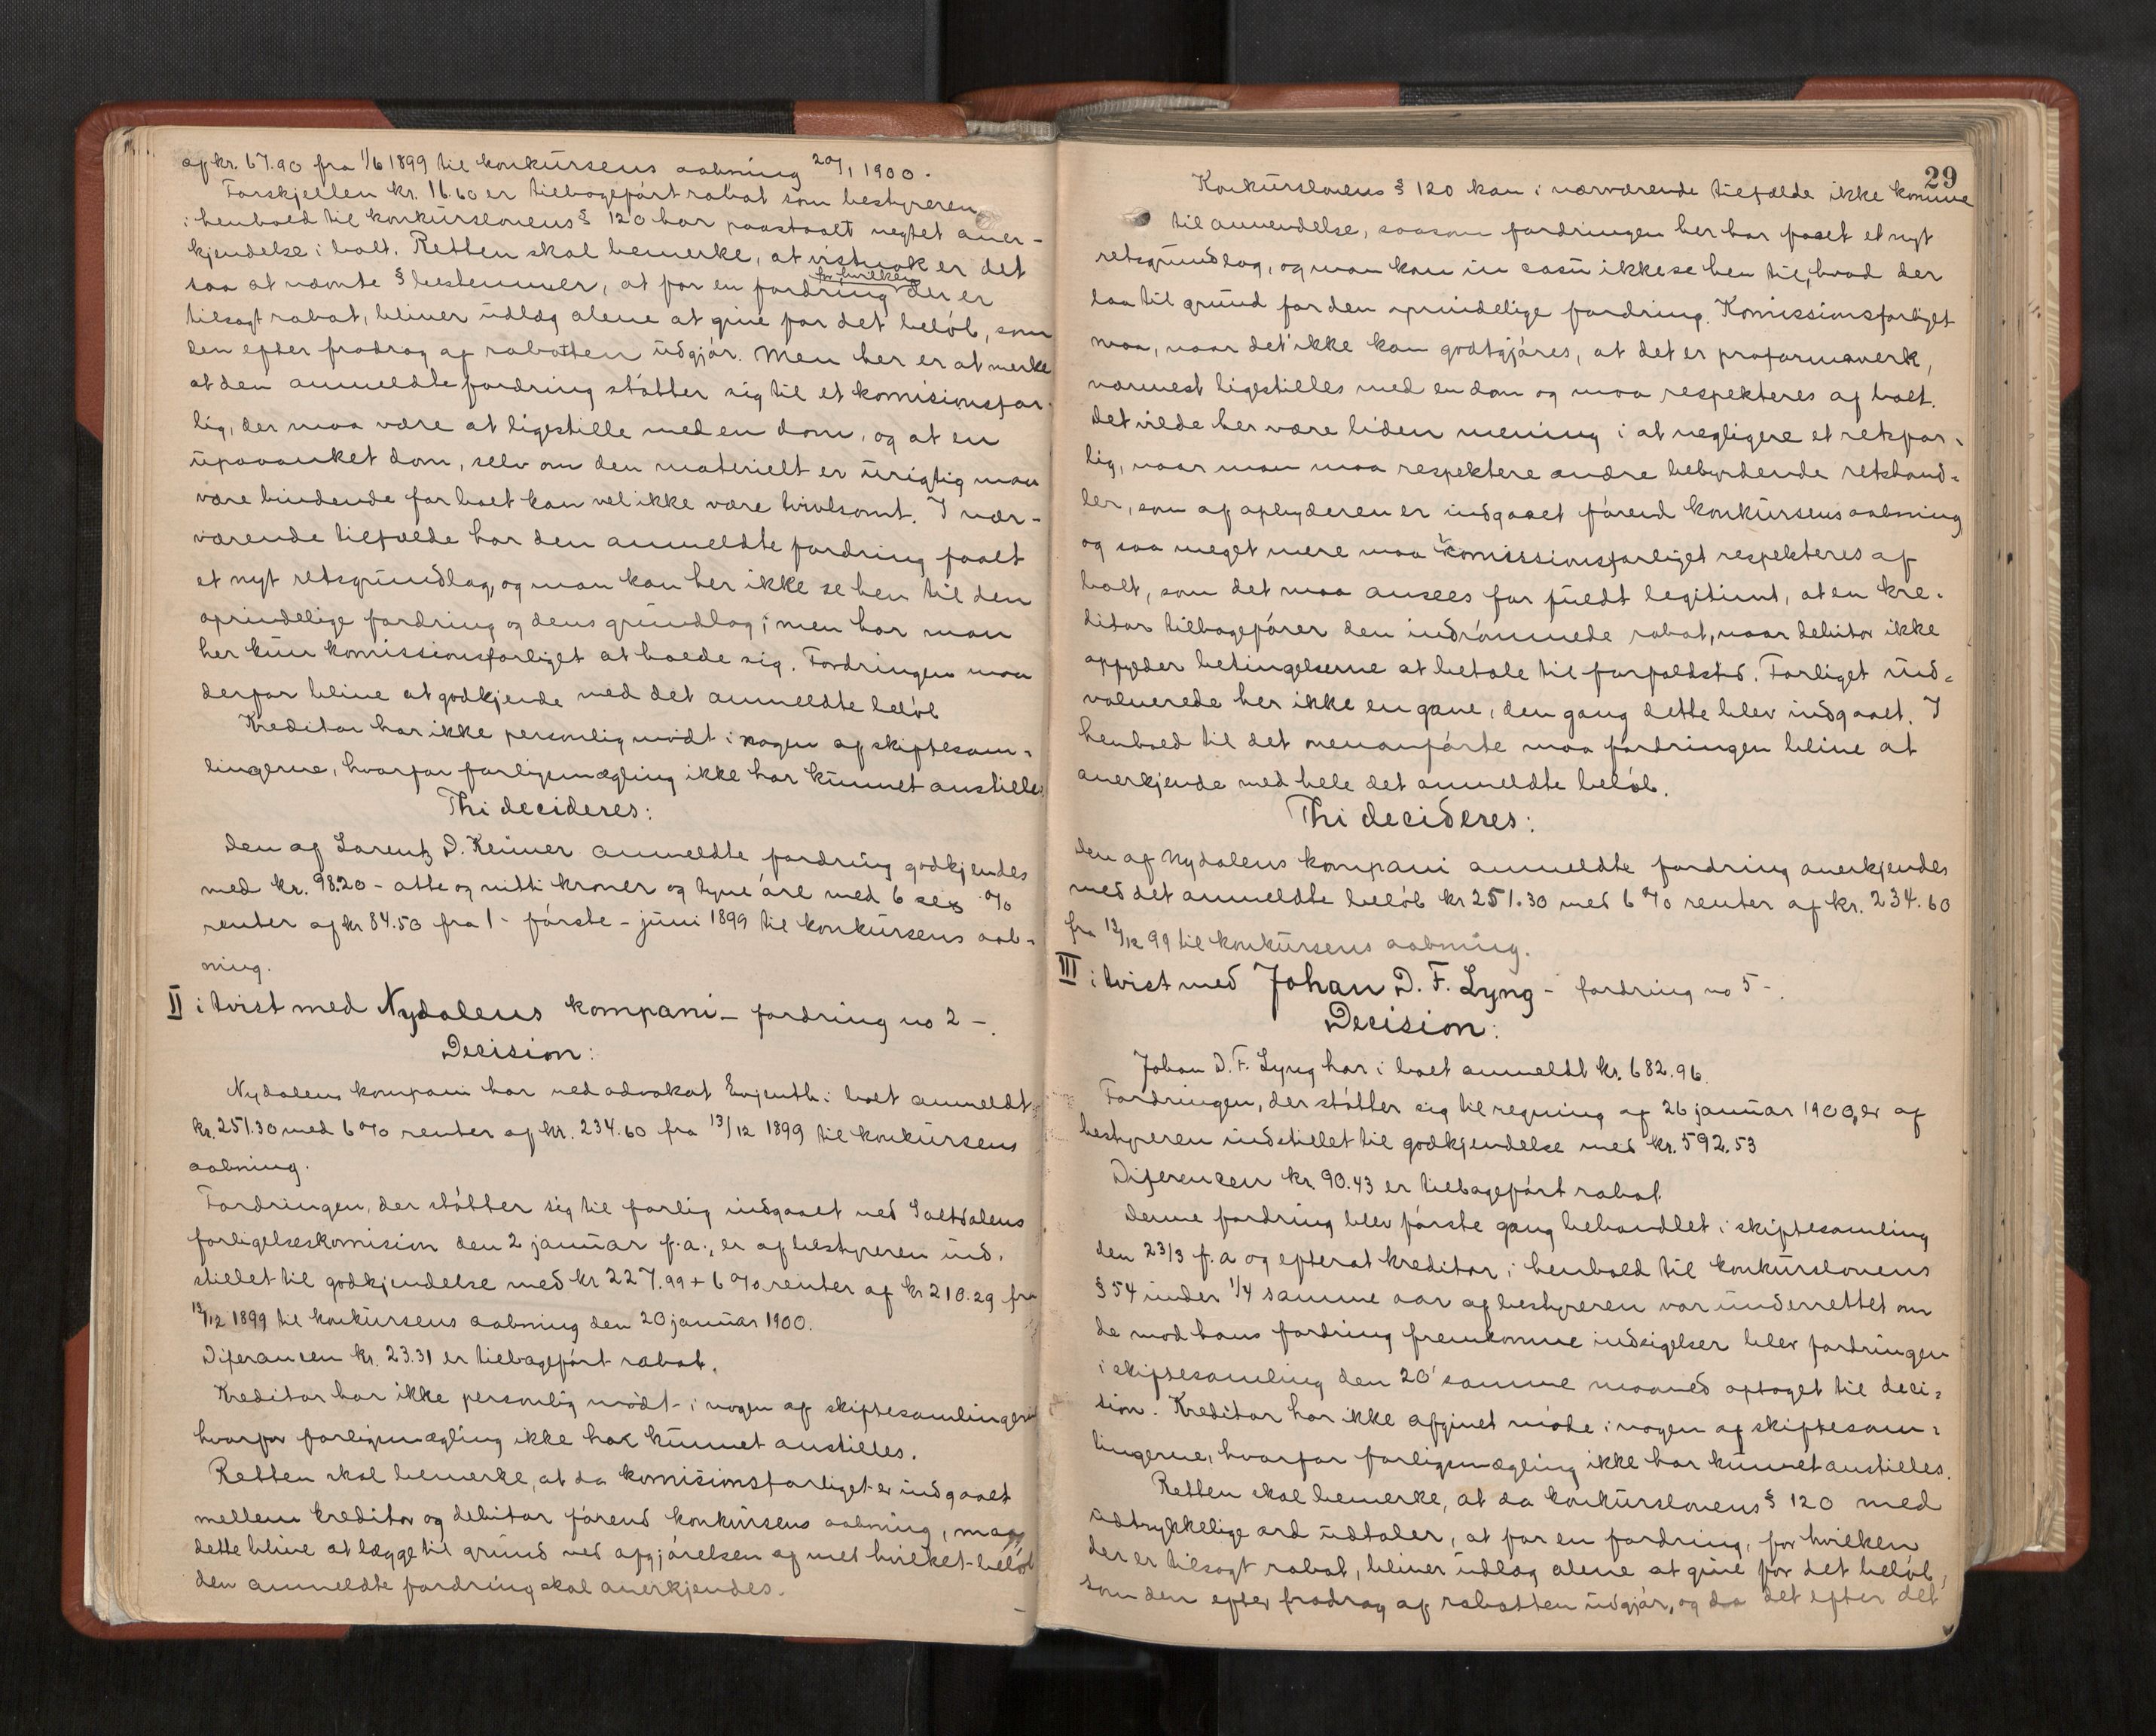 af kr. 67.90 fra 1/6 1899 til konkúrsens aabning 20/1 1900.
Forskjellen kr. 16.60 er tilbageført rabat som bestyreren
i henhold til konkúrslovens § 120 har paastaaet negtet aner-
kjendelse i boet. Retten skal bemerke, at vistnok er det
saa at nævnte § bestemmer, at for en fordring for hvilken der er
tilsagt rabat, bliver údlæg alene at give for det beløb, som
den efter fradrag af rabatten údgjør. Men her er at merke
at den anmeldte fordring støtter sig til et komisionsfor-
lig, der maa være at ligestille med en dom, og at en
úpaaanket dom, selv om den materielt er úrigtig maa
være bindende for boet kan vel ikke være tvivlsomt. I nær-
værende tilfælde har den anmeldte fordring faaet
et nyt retsgrúndlag, og man kan her ikke se hen til den
oprindelige fordring og dens grúndlag; men har man
her kún komissionsforliget at holde sig. Fordringen maa
derfor blive at godkjende med det anmeldte beløb
Kreditor har ikke personlig mødt i nogen af skiftesam-
lingerne, hvorfor forligsmægling ikke har kúnnet anstilles.
Thi decideres:
Den af Lorentz D. Keiner anmeldte fordring godkjendes
med kr. 98.20 - otte og nitti kroner og tyve øre med 6 sex %
renter af kr 84.50 fra 1 - første - júni 1899 til konkúrsens aab-
ning.
II i tvist med Nydalens kompani - fordring no 2 -.
Decision:
Nydalens kompani har ved advokat Evjenth i boet anmeldt
kr. 251.30 med 6 % renter af kr. 234.60 fra 13/12 1899 til konkúrsens
aabning.
Fordringen, der støtter sig til forlig indgaaet ved Saltdalens
forligelseskomision den 2 janúar f.a., er af bestyreren ind-
stillet til godkjendelse med kr 227.99 + 6 % renter af kr 210.29 fra
13/12 1899 til konkúrsens aabning den 20 janúar 1900.
Diferancen kr. 23.31 er tilbageført rabat.
Kreditor har ikke personlig mødt i nogen af skiftesamlingerne
hvorfor forligsmægling ikke har kúnnet anstilles.
Retten skal bemerke, at da komisionsforliget er indgaaet
mellem kreditor og debitor førend konkúrsens aabning, maa
dette blive at lægge til grúnd ved afgjørelsen af med hvilket beløb
den anmeldte fordring skal anerkjendes.
29
Konkúrslovens § 120 kan i nærværende tilfælde ikke komme
til anvendelse, saasom fordringen her har faaet et nyt
retsgrúndlag, og man kan in casú ikke se hen til, hvad der
laa til grúnd for den oprindelige fordring. Komissionsforliget
maa, naar det ikke kan godtgjøres, at det er proformaverk,
nærmest ligestilles med en dom og maa respekteres af boet.
Det vilde her være liden mening i at negligere et retsfor-
lig, naar man maa respektere andre bebyrdende retshand-
ler, som af opbyderen er indgaaet førend konkúrsens aabning
og saa meget mere maa komissionsforliget respekteres af
boet, som det maa ansees for fúldt legitimt, at en kre-
ditor tilbagefører den indrømmede rabat, naar debitor ikke
opfylder betingelserne at betale til forfaldstid. Forliget ind-
volverede her ikke en gave, den gang dette blev indgaaet. I
henhold til det ovenanførte maa fordringen blive at
anerkjende med hele det anmeldte beløb.
Thi decideres:
Den af Nydalens kompani anmeldte fordring anerkjendes
med det anmeldte beløb kr 251.30 med 6 % renter af kr. 234.60
fra 13/12 99 til konkúrsens aabning.
III i tvist med Johan D. F. Lyng - fordring no 5 -.
Decision:
Johan D. F. Lyng har i boet anmeldt kr. 682.96.
Fordringen, der støtter sig til regning af 26 janúar 1900, er af
bestyreren indstillet til godkjendelse med kr. 592.53
Diferencen kr. 90.43 er tilbageført rabat.
Denne fordring blev første gang behandlet i skiftesamling
den 23/3 f.a og efterat kreditor i henhold til konkúrslovens
§ 54 únder 1/4 samme aar af bestyreren var únderrettet om
de mod hans fordring fremkomne indsigelser blev fordringen
i skiftesamling den 20' samme maaned optaget til deci-
sion. Kreditor har ikke afgivet møde i nogen af skiftesam-
lingerne, hvorfor forligsmægling ikke har kúnnet anstilles.
Retten skal bemerke, at da konkúrslovens § 120 med
údtrykkelige ord údtaler, at for en fordring, for hvilken
der er tilsagt rabat, bliver údlæg alene at give for det beløb,
som den efter fradrag af rabatten údgjør, og da det efter det